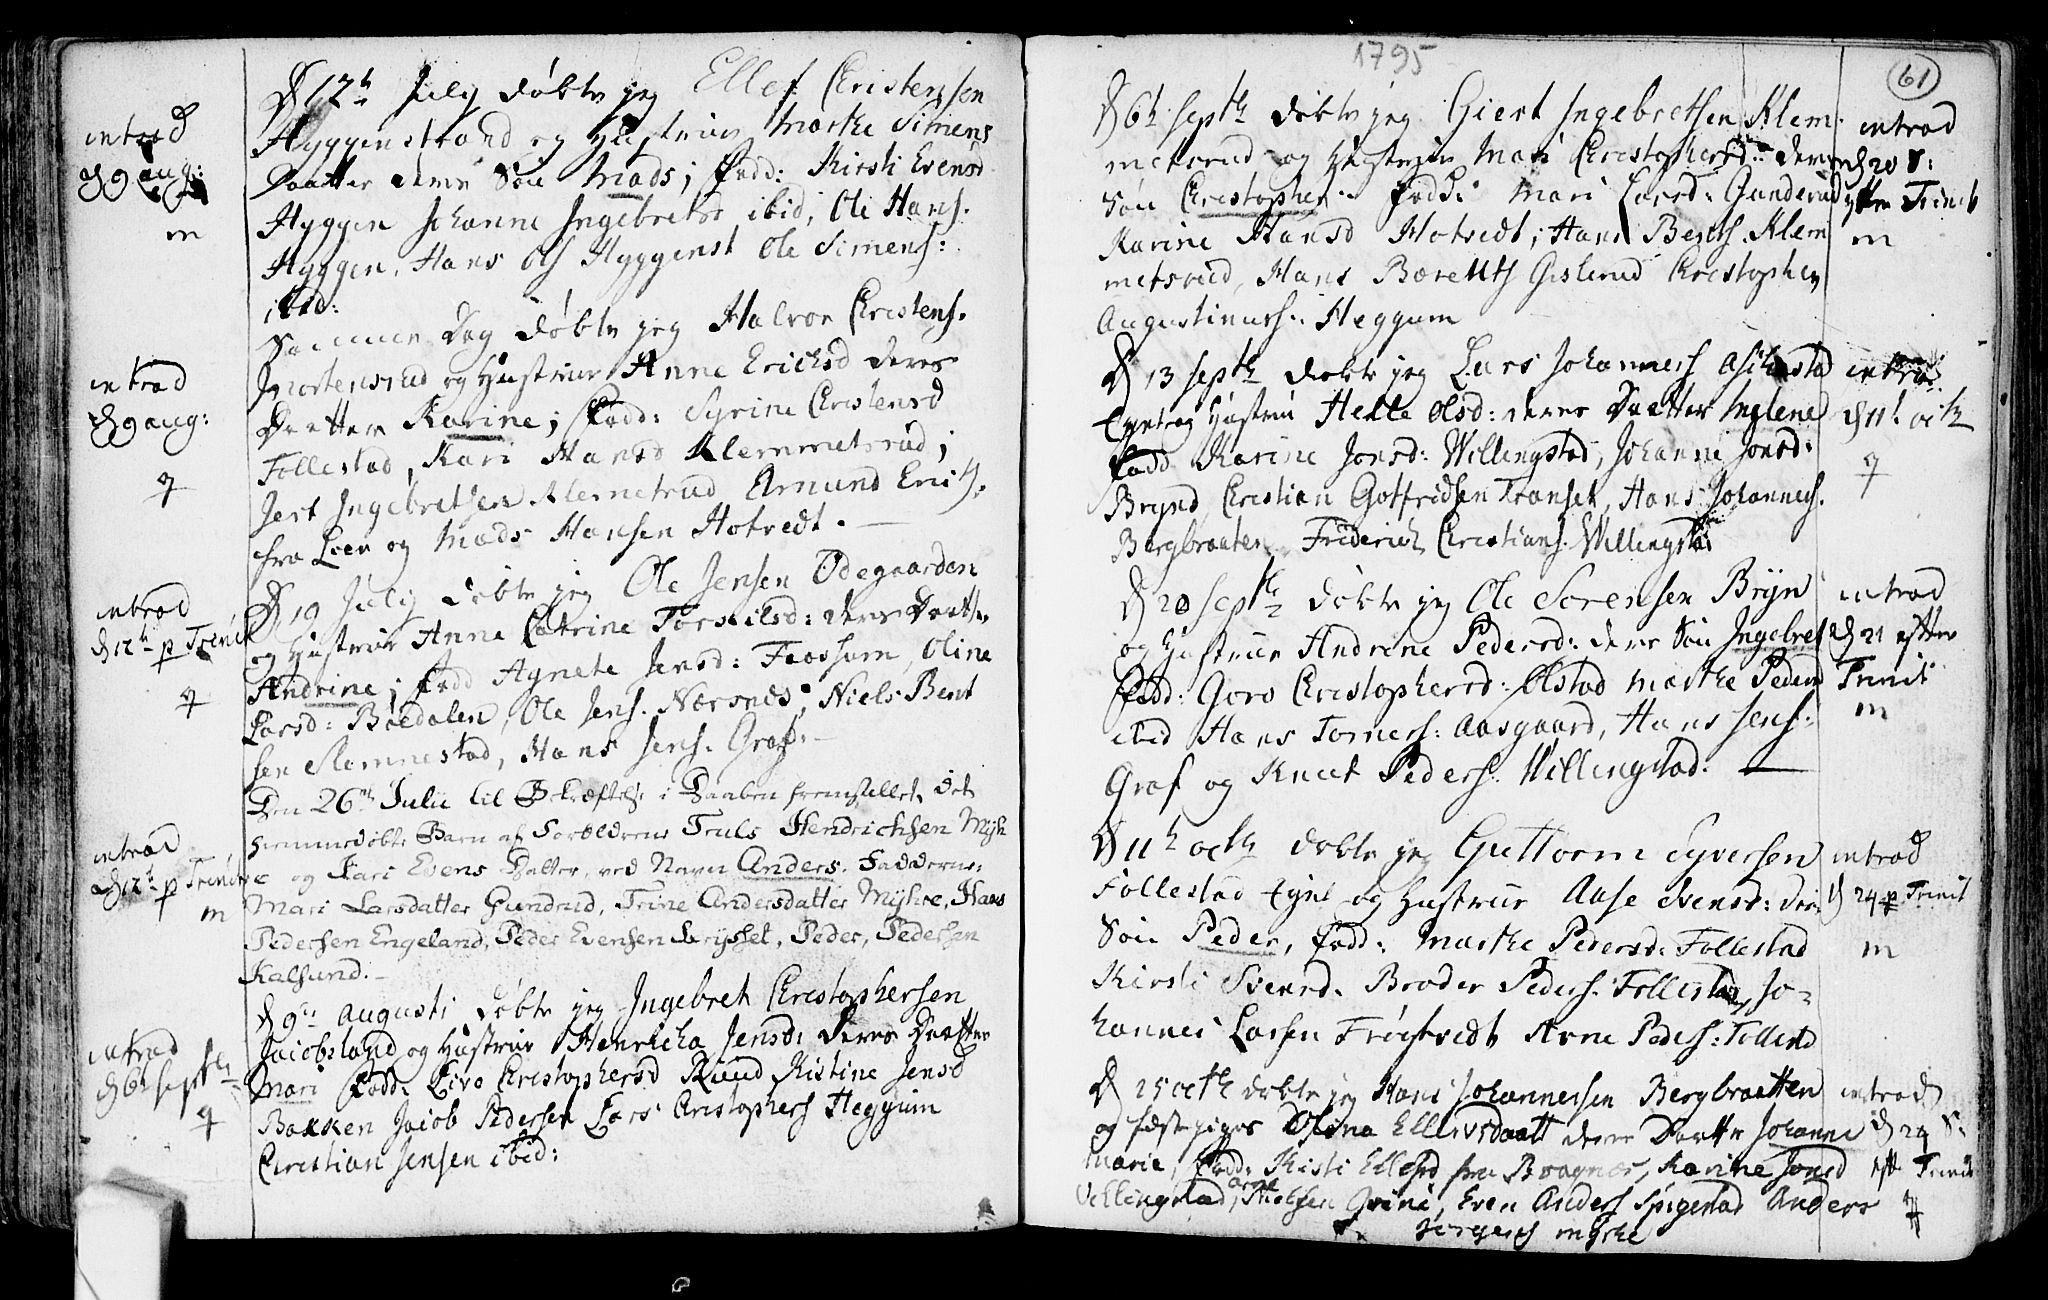 D 12te July døbte jeg Ellef Christensen
Hyggenstrand og Hustrue Marthe Simens
Daatter deres Søn Mads; Fadd: Kirsti Evensd
Hyggen Johanne Ingebretsd ibid, Ole Hans.
Hyggen, Hans Ols Hyggenst Ole Simens:
ibid:
introd
d 9 aug:
m
Samme Dag døbte jeg Halvor Christens.
Mortensrud og Hustrue Anne Erichsd deres
Daatter Karine; Fadd: Syrine Christensd
Follestad, Kari Hansd Klemmetsrud;
Jert Ingebretsen Klemetrud Amund Erichs.
fra Leer og Mads Hansen Hotvedt.
introd
d 9 aug:
q
D 19 July døbte jeg Ole Jensen Ødegaarden
og Hustrue Anne Catrine Torkilsd: deres Daatter
Andrine; Fadd Agnete Jensd: Flossum, Oline
Larsd: Bøedalen, Ole Jens. Nærsnes, Niels Bent
sen Rømnestad, Hans Jens. Graf.
introd
d 12te p Trinit
q
Den 26de Julii til Bekræftelse i Daaben fremstillet det
hiemmedøbte Barn af Forældrene Truls Hendrichsen Myh
re og Kari Evens Datter, ved Navn Anders. Faddere:
Mari Larsdatter Gundrud, Trine Andersdatter Myhre, Hans
Pedersen Engeland, Peder Evensen Drysset, Peder Pedersen
Kalsund.
introd
d 12t p Trinit
m
d 9de Augusti døbte jeg Ingebret Christophersen
Jacobsland og Hustrue Henricha Jensd: deres Daatter
Mari Fadd: Live Christophersd Ruud Kistine Jensd
Bakken Jacob Pedersen Lars Christophers Heggum
Christian Jensen ibid:
introd
d 6te septbr
q
1795
61
D 6te septbr døbte jeg Giert Ingebretsen Klem
metsrud og Hustrue Mari Christophersd: deres
Søn Christopher. Fadd: Mari Larsd: Gunderud
Karine Hansd Hotvedt, Hans Bents. Klem
metsrud, Hans Børents Gislerud Christopher
Augustinuss: Heggum
introd
d 20 S:
efter Trinit
m
D 13 septbr døbte jeg Lars Johanness Asikestad
Eyert og Hustru Helle Olsd: deres Daatter Inglene
Fadd Karine Jonsd: Willingstad, Johanne Jonsd:
Brynd Christian Gotfridsen Transet, Hans Johanness.
Bergbraaten Friderich Christians. Willingstad
introd
d 11te octb
q
D 20 septbr døbte jeg Ole Sørensen Bryn
og Hustrue Andrine Pedersd: deres Søn Ingebret
Fadd: Goro Christophersd: Ølstad Marthe Pedersd
ibid Hans Tomess: Aasgaard, Hans Jens.
Graf og Knut Peders. Willingstad.
introd
d 21 efter
Trinit
m
D 11te octbr døbte jeg Guttorm Syversen
Follestad Eyert og Hustrue Aase Svensd: deres
Søn Peder, Fadd: Marthe Pedersd: Follestad
Kirsti Svensd. Broder Peders. Follestad, Jo-
hannes Larsen Frøistvedt Arne Peders: Follestad
introd
d 24 p Trinit
m
D 25 octbr døbte jeg Hans Johannessen Bergbraatten
og fæstepiges Olena Ellevsdaatt deres Daatter Johanne
Marie, Fadd: Kisti Ellefsd fra Bragnæs, Karine Jonsd
Willingstad, Arne Nielsen Grini, Even Anders Spigestad Anders
Jørgens myhre
introd
d 24 S:
eft Trinit
q